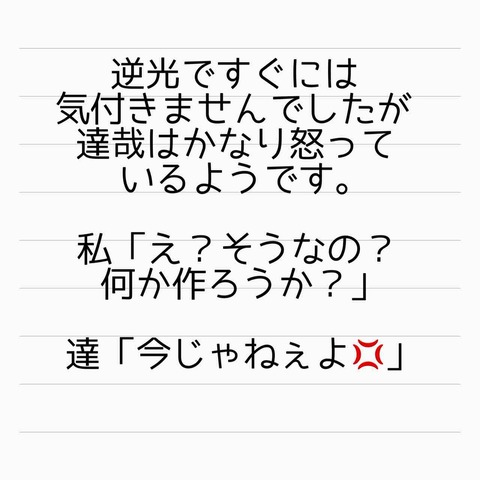 逆光ですぐには
気付きませんでしたが
達哉はかなり怒って
いるようです。
私「え？そうなの？
何か作ろうか？」
達「今じゃねぇよ💢」